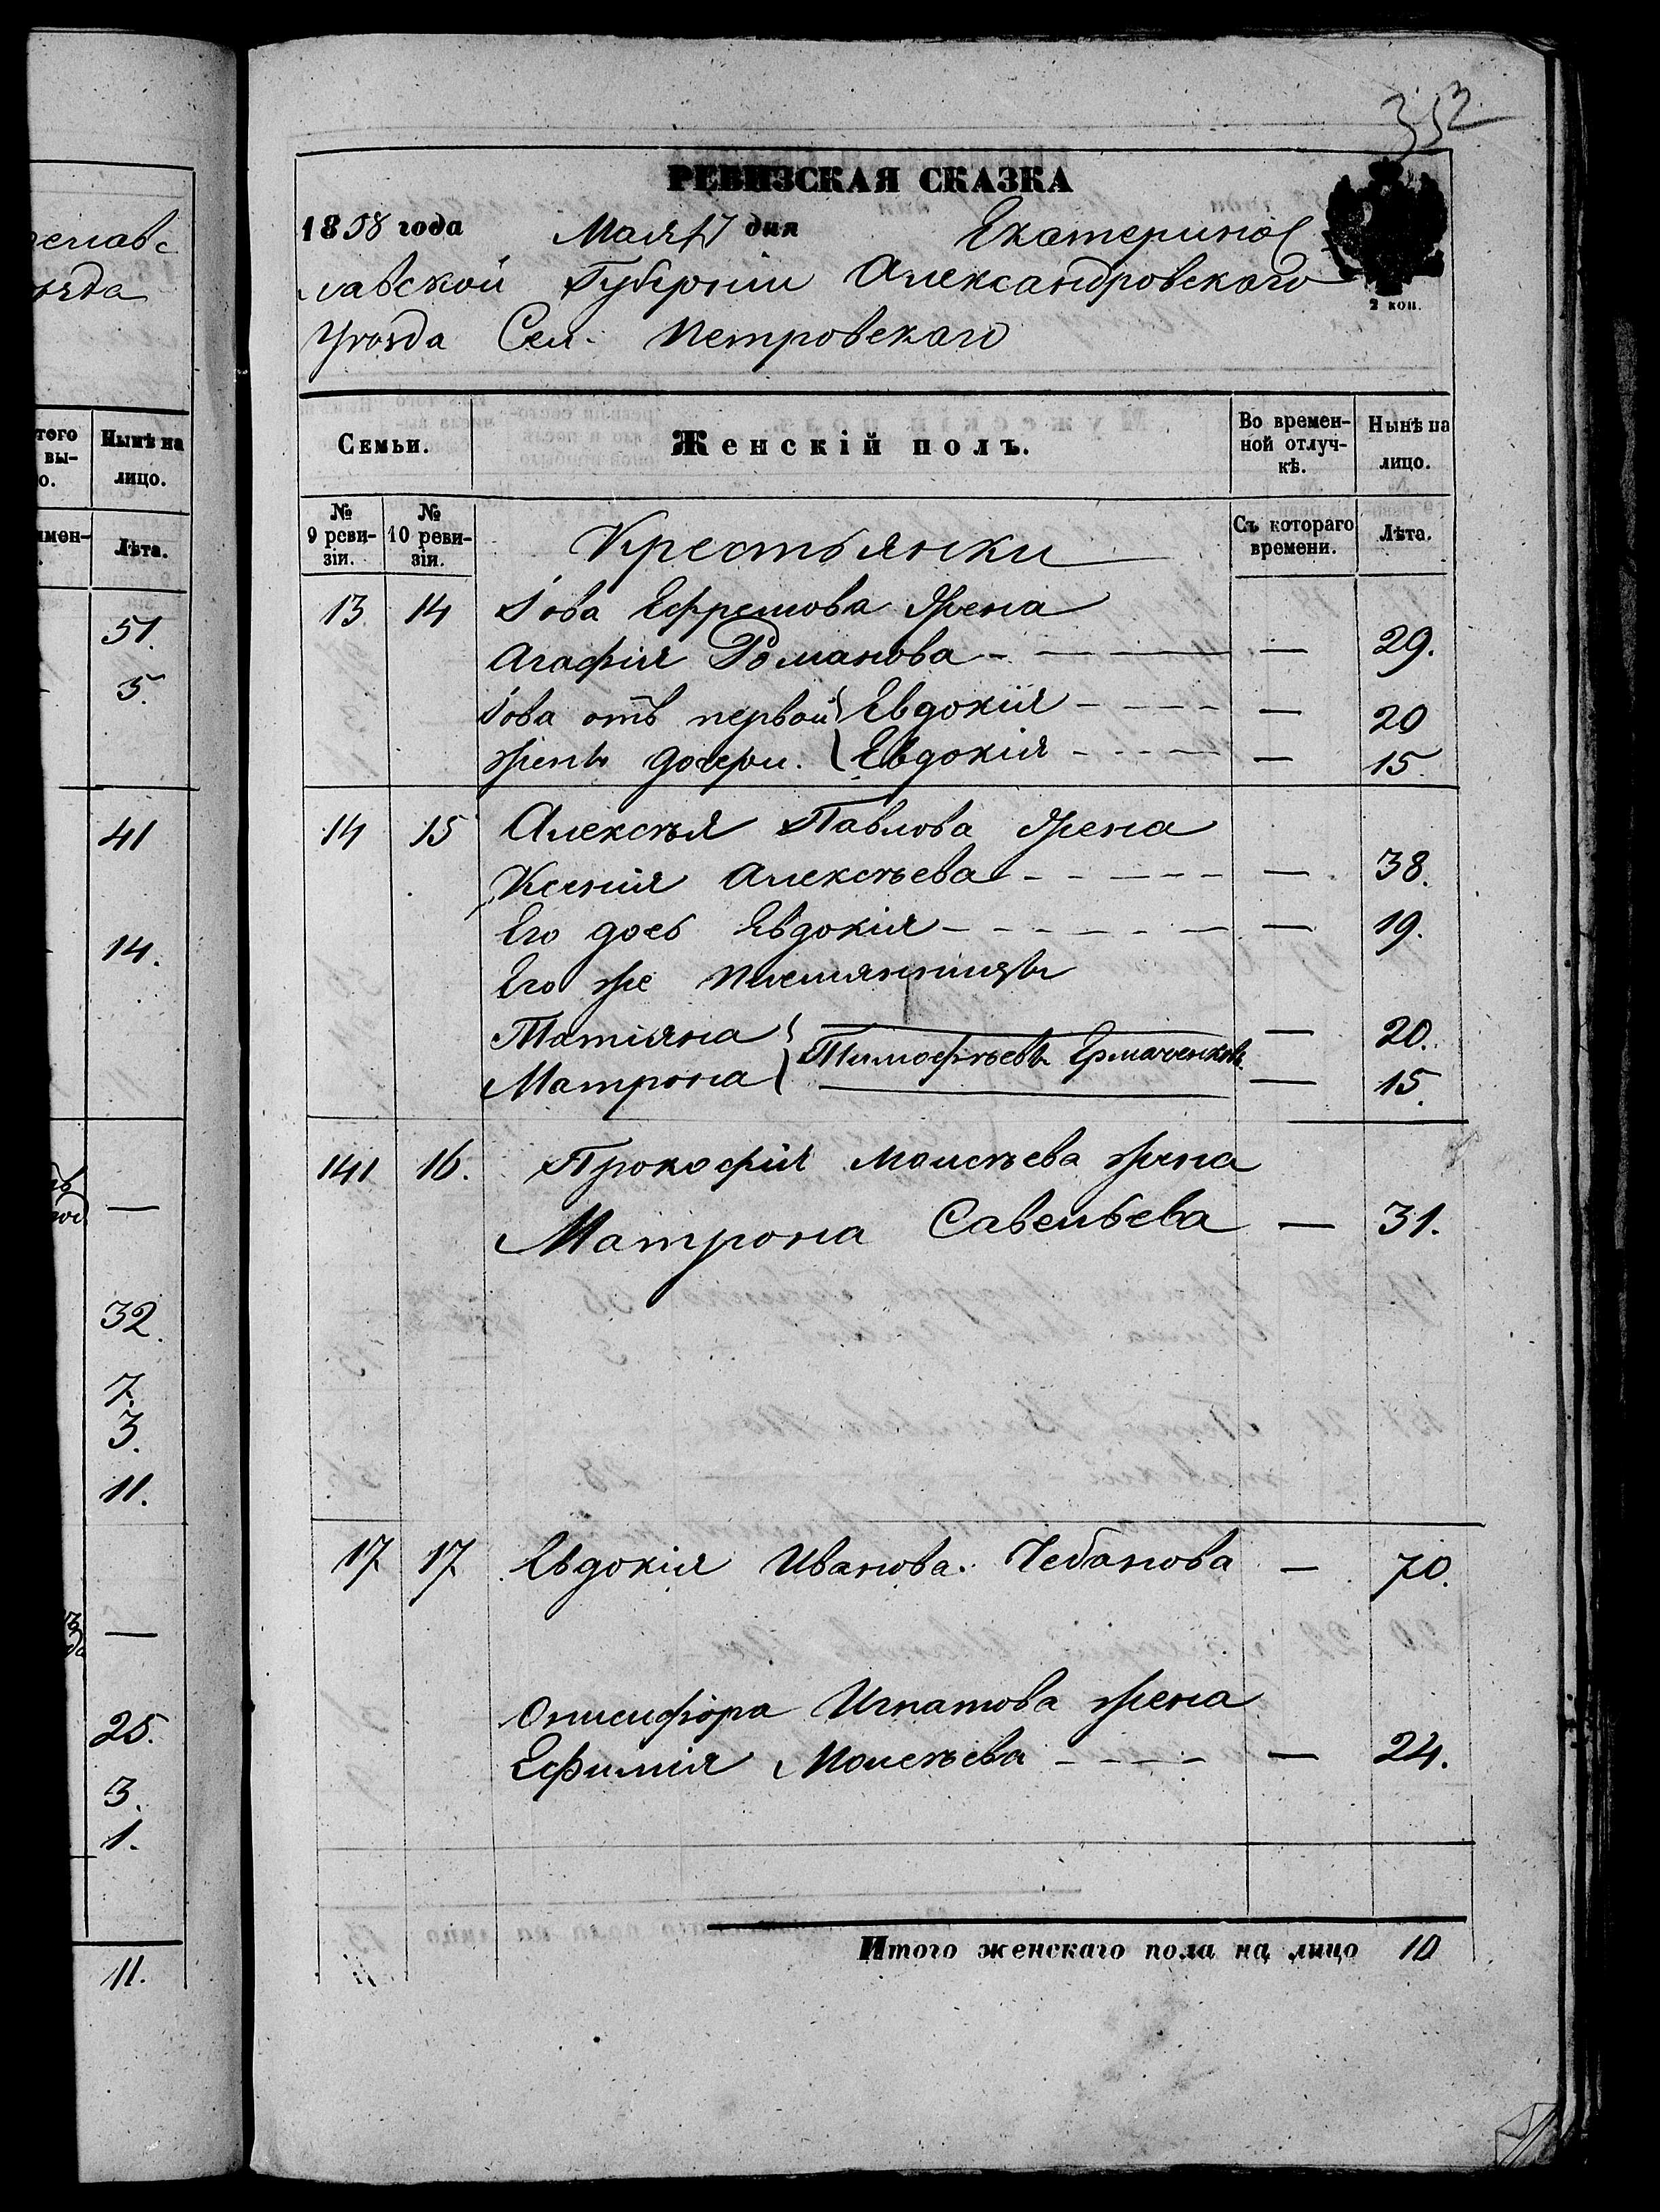 352
РЕВИЗСКАЯ СКАЗКА
1858 года Мая 17 дня Екатеринос
лавской Губерніи Александровскаго
Уѣзда Сел. Петровскаго
2 коп.
Семьи.
Женскій полъ.
Во времен-
ной отлуч-
кѣ.
Нынѣ на
лицо.
№
9 реви-
зіи.
№
10 реви-
зіи.
Крестьянки
Съ котораго
времени.
Лѣта.
13 14 Іова Ефремова жена
Агафія Романова — 29.
Іова отъ первой Евдокія — 20
жены дочери. Евдокія — 15.
14 15 Алексѣя Павлова жена
Ксенія Алексѣева — 38.
Его дочь Евдокія — 19.
Его же племянницы
Татіяна — 20.
Тимофѣевы Ермаченковы
Матрона — 15.
141 16. Прокофія Моисѣева жена
Матрона Савельева — 31.
17 17 Евдокія Иванова Чебанова — 70.
Онисифора Игнатова жена
Ефимія Моисѣева — 24.
Итого женскаго пола на лицо 10
Нынѣ на
лицо.
Лѣта.
51.
5.
41
14.
—
32.
7.
3.
11.
—
25.
3.
1.
11.